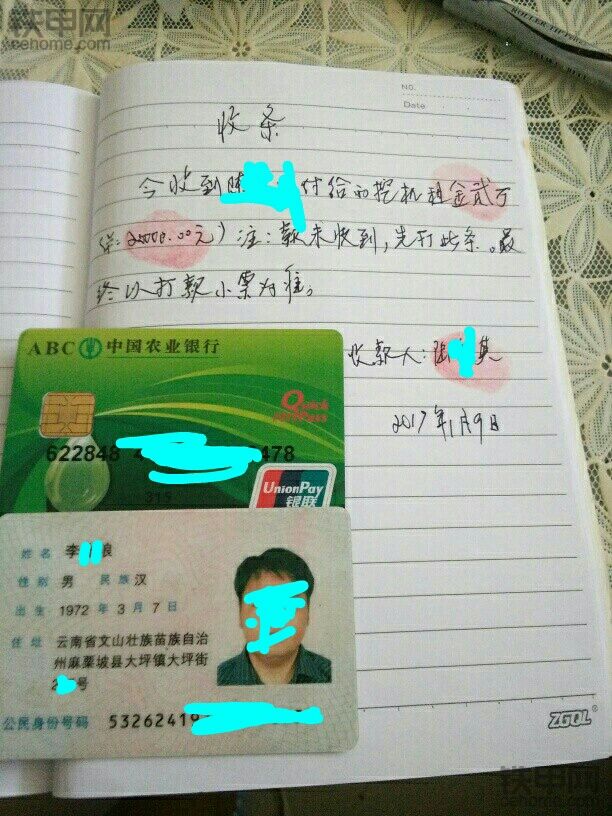 铁甲网
cehome.com
NO.
Date
收条
今收到陈 付给的挖机租金贰万
25000.00元)注:款未收到,先打此条。最
终以打款小票为准。
收款人: 其
2017年1月9日
ABC 中国农业银行
Quick Pass
622848 4 478
315
UnionPay
银联
姓名 李 浪
性别 男 民族 汉
出生 1972 年 3 月 7 日
住址 云南省文山壮族苗族自治
州麻栗坡县大坪镇大坪街
2 号
公民身份号码 53262419
ZGQL®
铁甲网
cehome.com